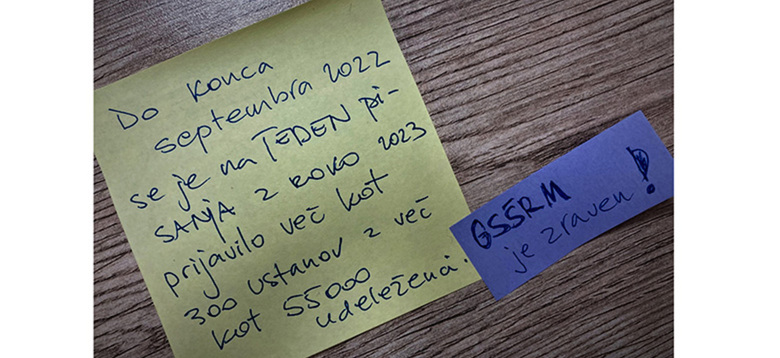 Do konca
septembra 2022
se je na TEDEN pi-
SANJA z ROKO 2023
prijavilo več kot
300 ustanov z več
kot 55000
udeleženci.
GSŠRM
je zraven!